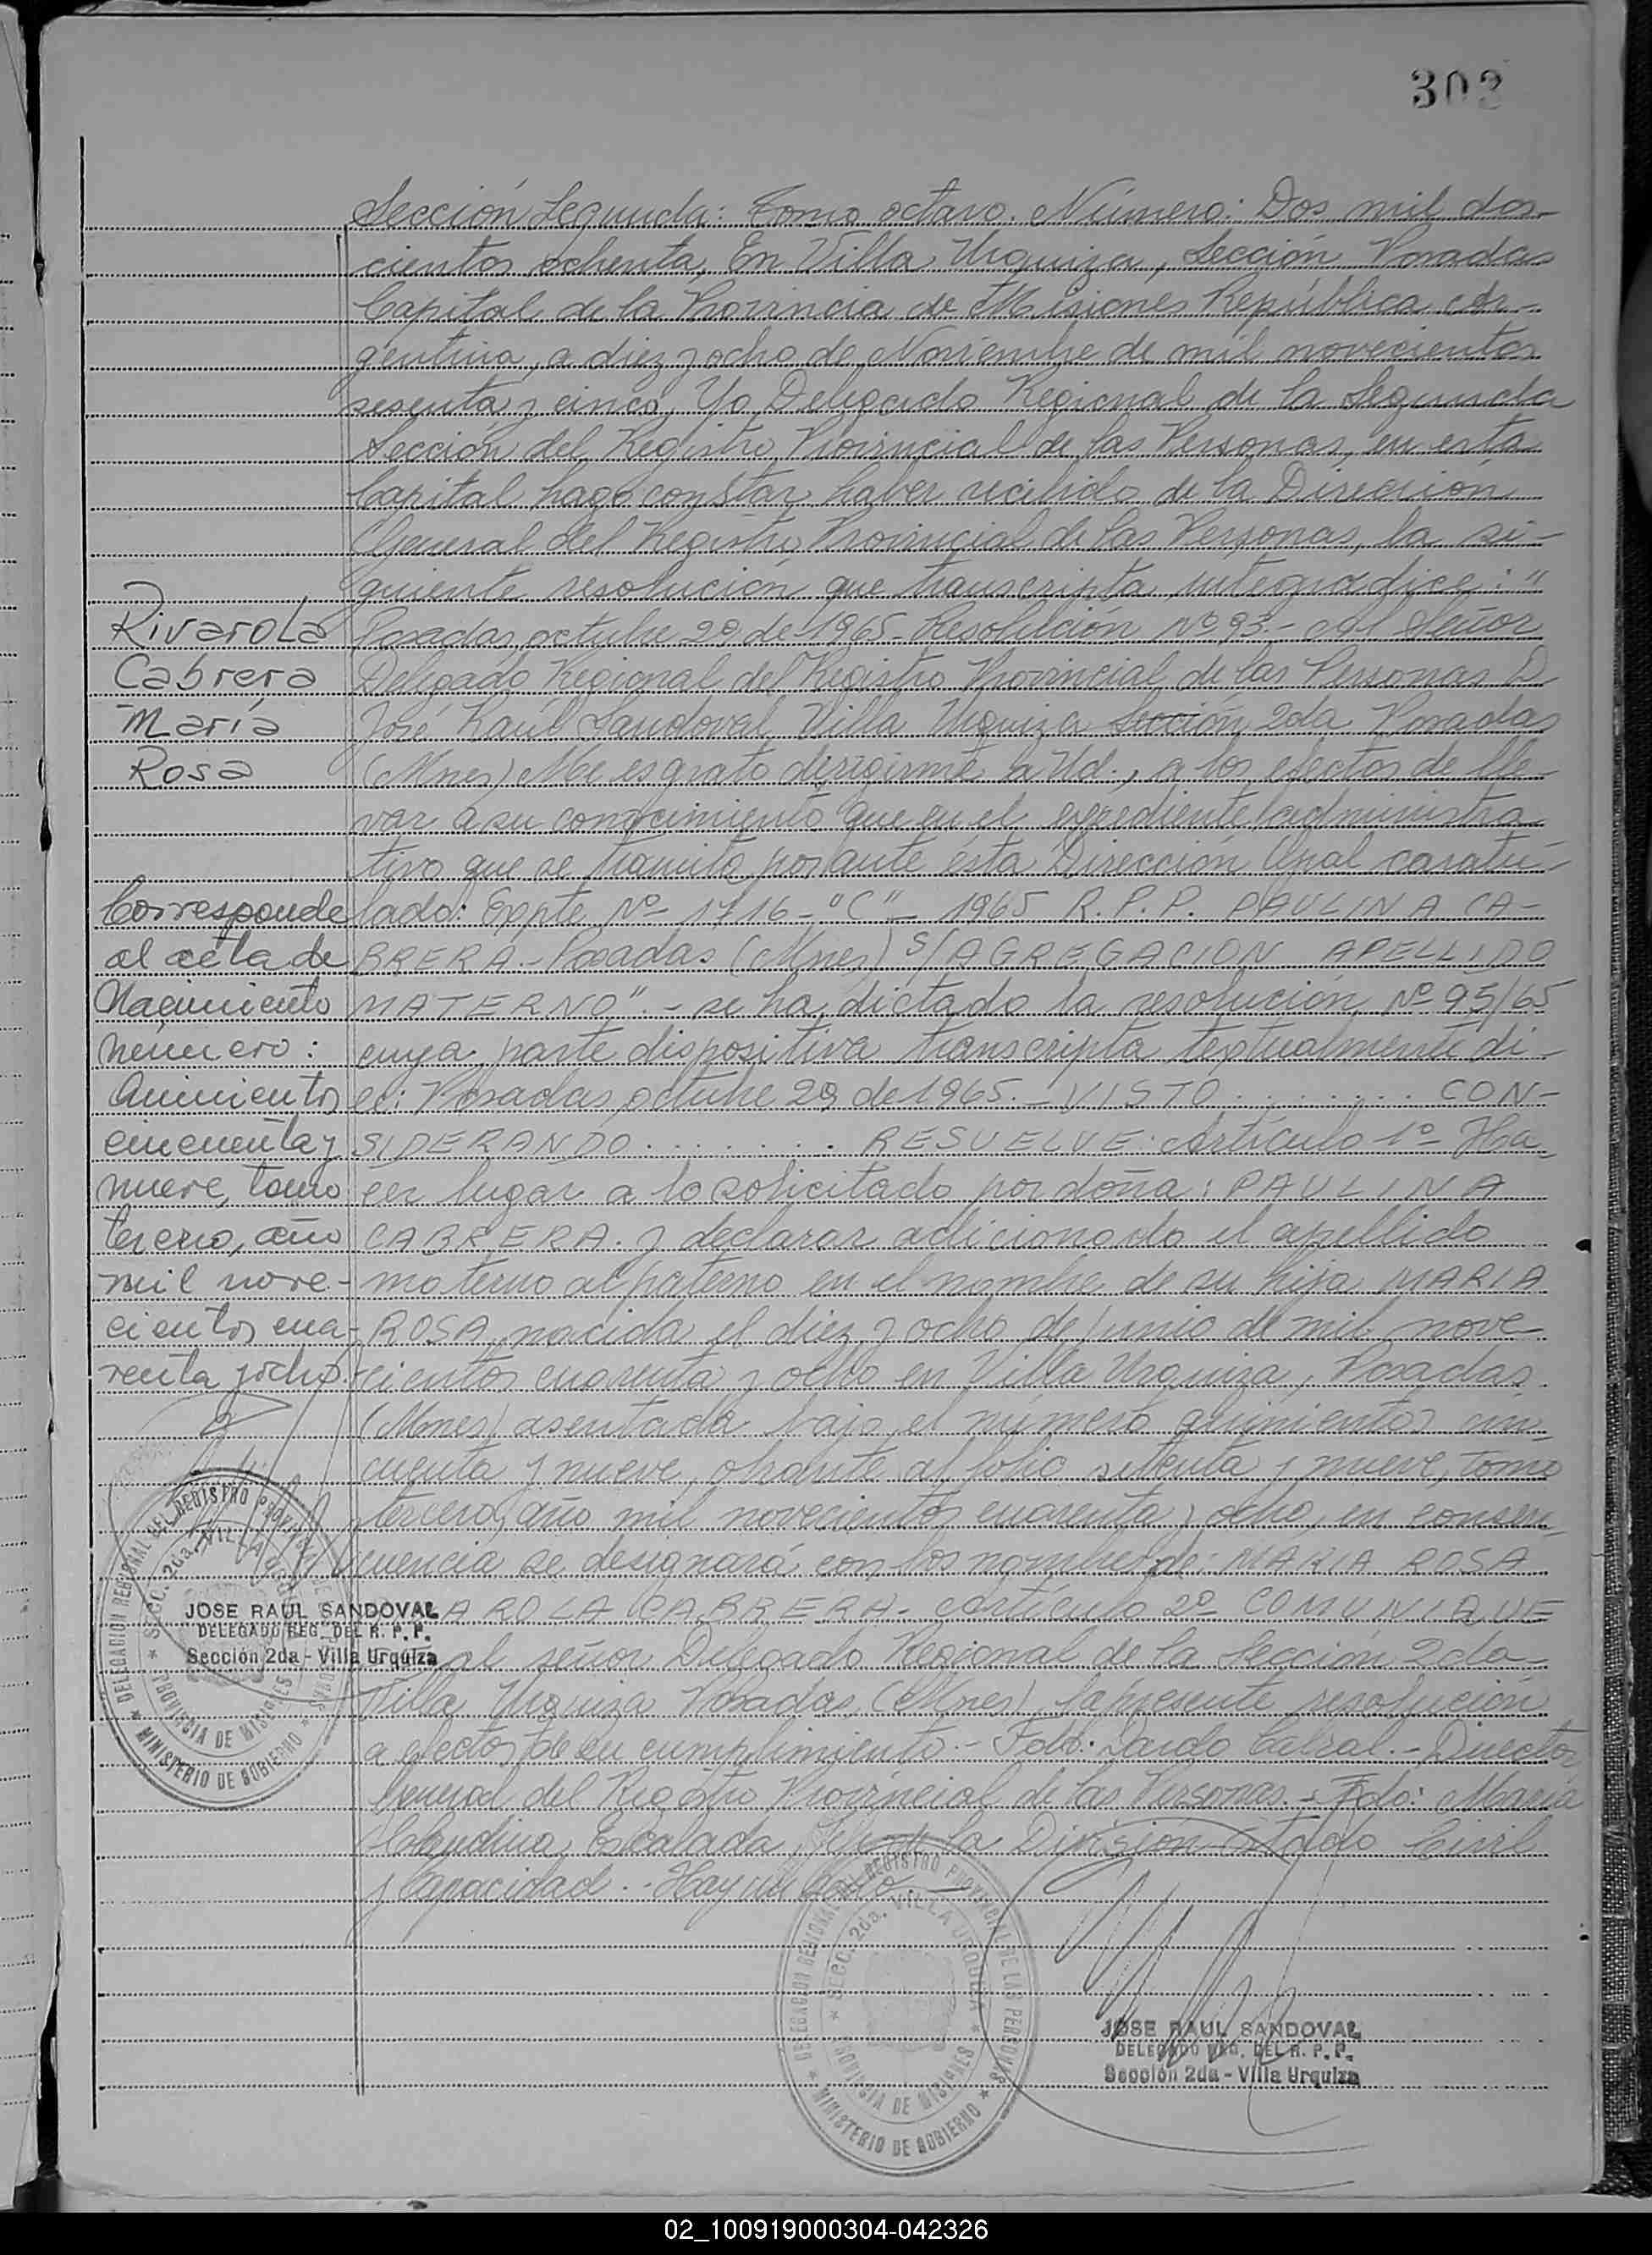 303
Sección Segunda: Tomo octavo. Número: Dos mil dos-
cientos ochenta, En Villa Urquiza, Sección Posadas
Capital de la Provincia de Misiones República Ar-
gentina, a diez y ocho de Noviembre de mil novecientos
sesenta y cinco, Yo Delegado Regional de la Segunda
Sección del Registro Provincial de las Personas, en esta
Capital hago constar haber recibido de la Dirección
General del Registro Provincial de las Personas, la si-
guiente resolución que transcripta integra dice: "
Posadas, octubre 29 de 1965. Resolución Nº 93.- Al Señor
Delegado Regional del Registro Provincial de las Personas D
José Raúl Sandoval Villa Urquiza Sección 2da Posadas
(Mnes) Me es grato derigirme a Ud., a los efectos de lle-
var a su conocimiento que en el expediente administra-
tivo que se tramita por ante ésta Dirección Gral caratu-
lado: Expte Nº 1716-"C"- 1965 R.P.P. PAULINA CA-
BRERA.- Posadas (Mnes) s/AGREGACION APELLIDO
MATERNO".- se ha dictado la resolución Nº 95/65
cuya parte dispositiva transcripta textualmente di-
ce: Posadas octubre 29 de 1965.- VISTO ........ CON-
SIDERANDO ........ RESUELVE: Artículo 1º Ha-
cer lugar a lo solicitado por doña: PAULINA
CABRERA. y declarar adicionado el apellido
materno al paterno en el nombre de su hija MARIA
ROSA, nacida el diez y ocho de junio de mil nove-
cientos cuarenta y ocho en Villa Urquiza, Posadas
(Mnes) asentada bajo el número quinientos cin-
cuenta y nueve, obrante al folio setenta y nueve, tomo
tercero, año mil novecientos cuarenta y ocho, en conse-
cuencia se designará con los nombre de: MARIA ROSA
AROLA CABRERA- Artículo 2º COMUNIQUE
al señor Delegado Regional de la Sección 2da-
Villa Urquiza Posadas (Mnes) la presente resolución
a efectos de su cumplimiento.- Fdo: Dardo Cabral.- Director
General del Registro Provincial de las Personas.- Fdo: María
Claudina Escalada, Jefe de la División Estado Civil
y Capacidad.- Hay un sello
Rivarola
Cabrera
María
Rosa
Corresponde
al acta de
Nacimiento
número:
Quinientos
cincuenta y
nueve, tomo
tercero, año
mil nove-
cientos cua-
renta y ocho.
DELEGACION REGIONAL DEL REGISTRO PROVINCIAL DE LAS PERSONAS
SECC. 2da. VILLA URQUIZA
PROVINCIA DE MISIONES
MINISTERIO DE GOBIERNO
JOSE RAUL SANDOVAL
DELEGADO REG. DEL R. P. P.
Sección 2da - Villa Urquiza
DELEGACION REGIONAL DEL REGISTRO PROVINCIAL DE LAS PERSONAS
SECC. 2da. VILLA URQUIZA
PROVINCIA DE MISIONES
MINISTERIO DE GOBIERNO
JOSE RAUL SANDOVAL
DELEGADO REG. DEL R. P. P.
Sección 2da - Villa Urquiza
02_100919000304-042326